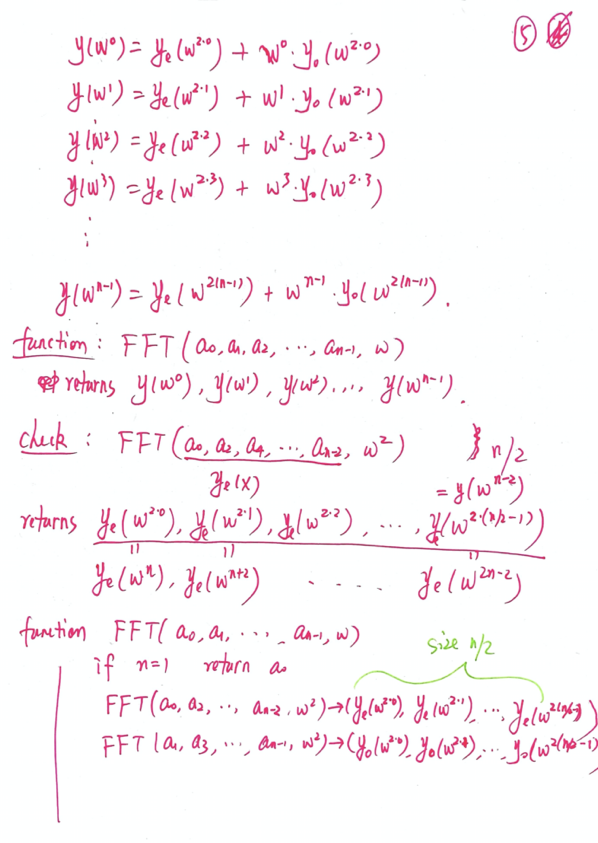 ⑤
y(w⁰) = yₑ(w²·⁰) + w⁰·yₒ(w²·⁰)
y(w¹) = yₑ(w²·¹) + w¹·yₒ(w²·¹)
y(w²) = yₑ(w²·²) + w²·yₒ(w²·²)
y(w³) = yₑ(w²·³) + w³·yₒ(w²·³)
⋮
y(wⁿ⁻¹) = yₑ(w²⁽ⁿ⁻¹⁾) + wⁿ⁻¹·yₒ(w²⁽ⁿ⁻¹⁾).
function: FFT(a₀, a₁, a₂, ..., aₙ₋₁, w)
returns y(w⁰), y(w¹), y(w²) ... y(wⁿ⁻¹).
check: FFT(a₀, a₂, a₄, ..., aₙ₋₂, w²) } n/2
yₑ(x) = y(wⁿ⁻²)
returns yₑ(w²·⁰), yₑ(w²·¹), yₑ(w²·²), ..., yₑ(w^2·(n/2-1))
" " "
yₑ(wⁿ), yₑ(wⁿ⁺²) .... yₑ(w²ⁿ⁻²)
function FFT(a₀, a₁, ... aₙ₋₁, w)
size n/2
if n=1 return a₀
FFT(a₀, a₂, .., aₙ₋₂, w²) → (yₑ(w²·⁰), yₑ(w²·¹), ..., yₑ(w^2(n/2-1))
FFT(a₁, a₃, ..., aₙ₋₁, w²) → (yₒ(w²·⁰), yₒ(w²·¹), ... yₒ(w^2(n/2-1))